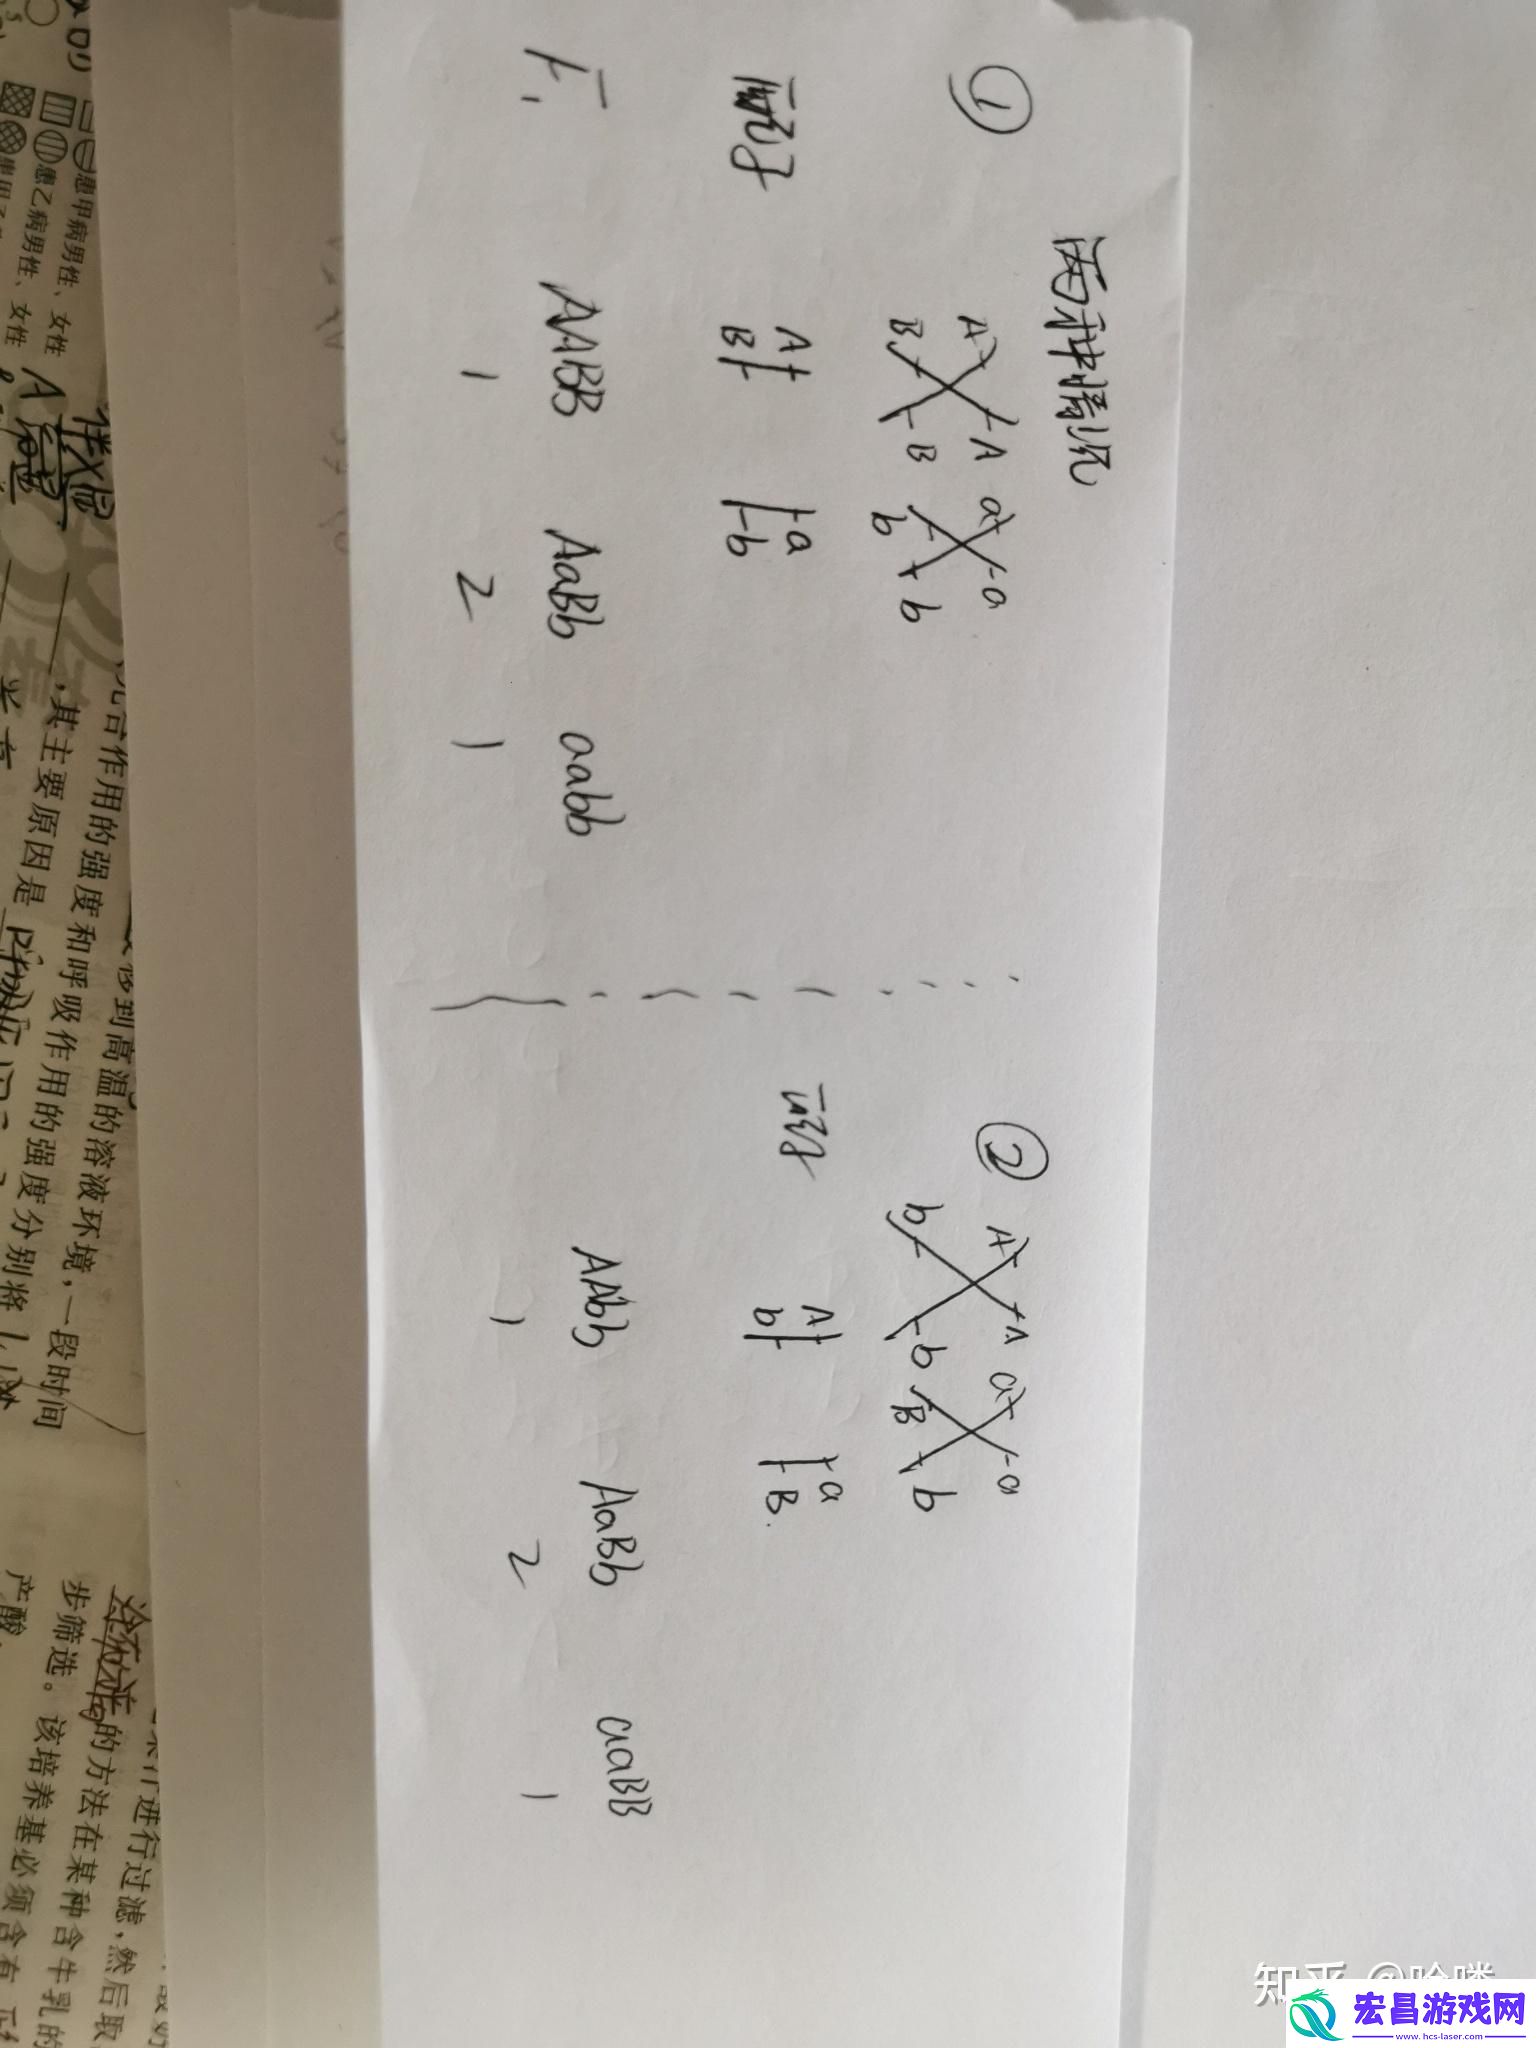 两种情况
①
A A a a
B B b b
配子
A a
B b
F₁ AABB AaBb aabb
1 2 1
②
A A a a
b b B b
配子
A a
b B.
AAbb AaBb aaBB
1 2 1
患甲病男性、女性
患乙病男性、女性
光合作用的强度和呼吸作用的强度分别将
,其主要原因是
移到高温的溶液环境,一段时间
进行过滤,然后取
的方法在某种含牛乳的
步筛选。该培养基必须含有
产酸
知乎 @哈喽
宏昌游戏网
www.hcs-laser.com